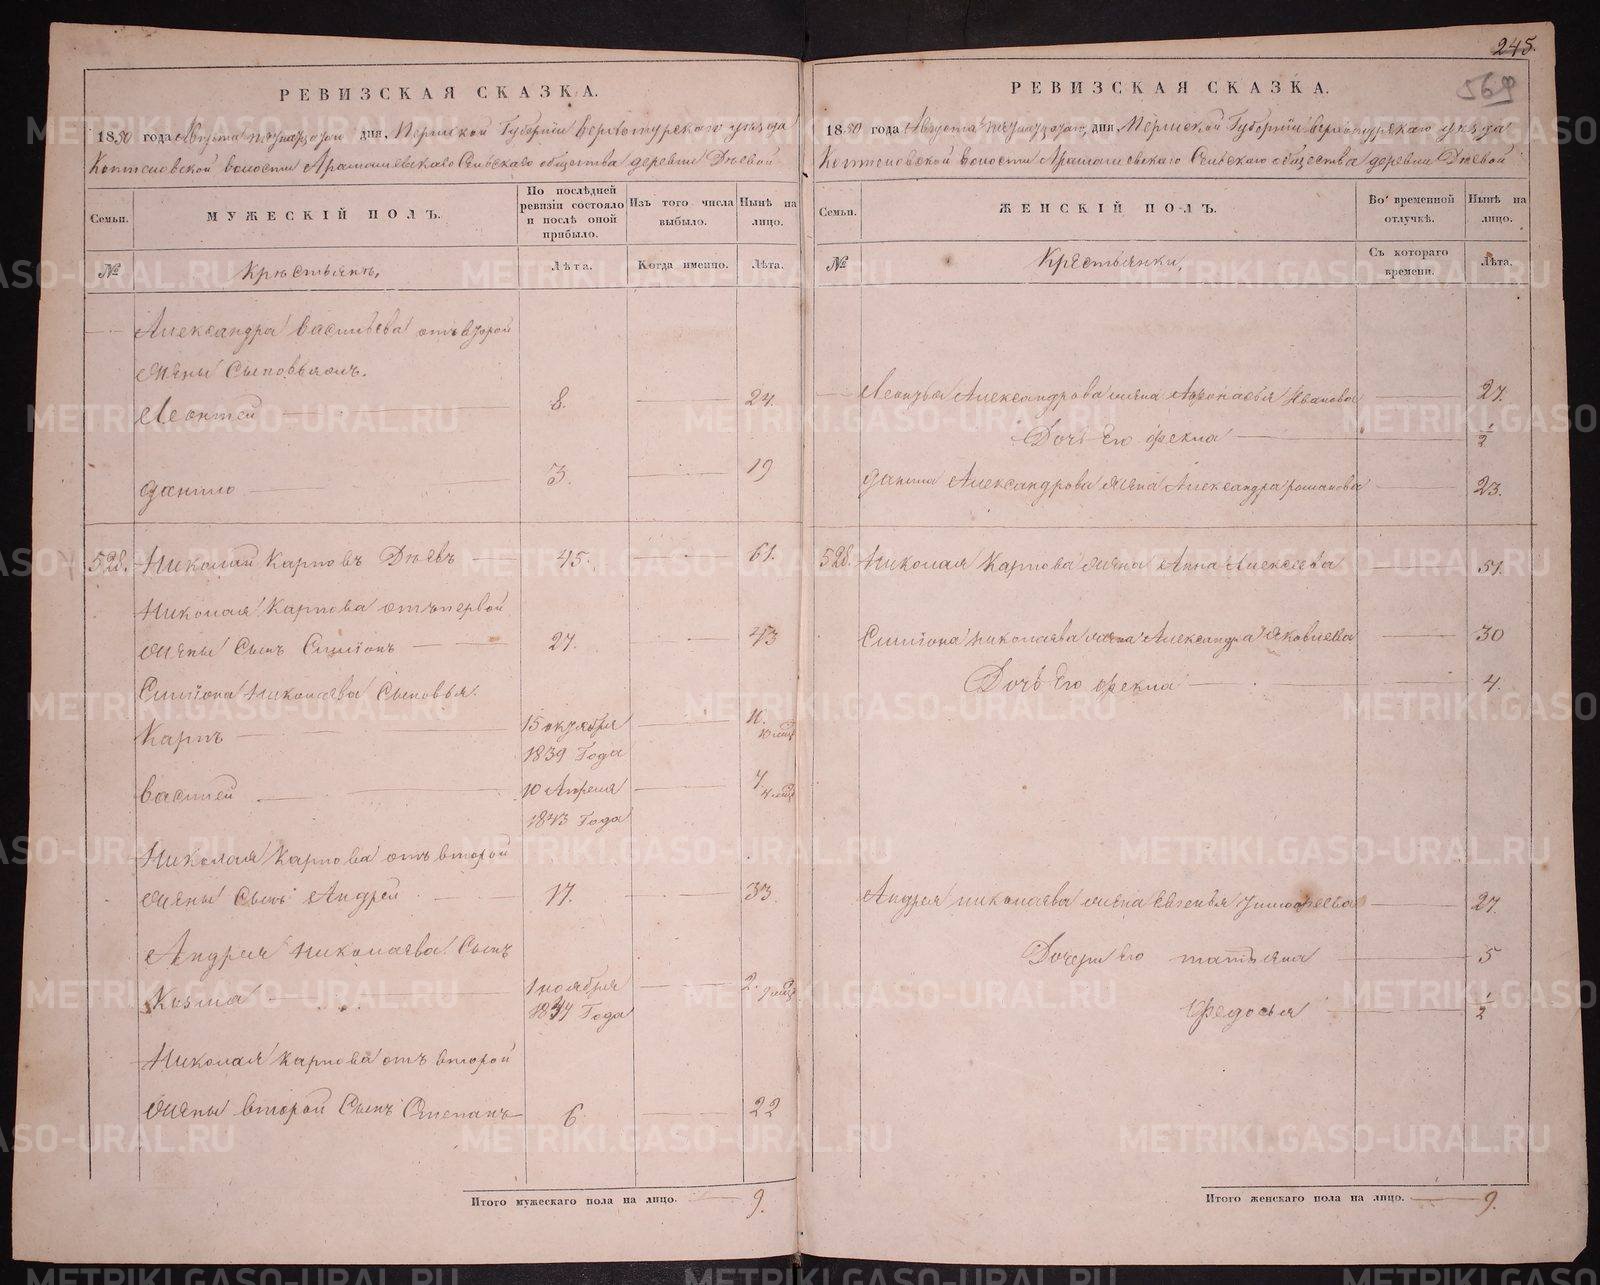 245.
569
РЕВИЗСКАЯ СКАЗКА.
1850 года Августа дня, Пермской Губернiи верхотурскаго уѣзда
Коптеловской волости Арамашевскаго Сельскаго общества деревни Дѣевой
Семьи.
МУЖЕСКIЙ ПОЛЪ.
По послѣдней ревизiи состояло и послѣ оной прибыло.
Изъ того числа выбыло.
Нынѣ на лицо.
№
Крѣстьянъ,
Лѣта.
Когда именно.
Лѣта.
Александра васильева отъ второй
жены Сыновьямъ.
Леонтей 8. 24.
данило 3. 19
528. Николай Карповъ Дѣевъ 45. 61.
Николая Карпова отъ первой
жены Сынъ Симiонъ 27. 43
Симiона Николаева Сыновья.
Карпъ 15 октября 10. 10 мѣц
1839 Года
василей 10 Апреля 7 4 мѣц
1843 Года
Николая Карпова отъ второй
жены Сынъ Андрей 17. 33.
Андрея Николаева Сынъ
Козма 1 ноября 2. 9 мѣц
1847 Года
Николая Карпова отъ второй
жены второй Сынъ Степанъ 6 22
Итого мужескаго пола на лицо. 9.
РЕВИЗСКАЯ СКАЗКА.
1850 года Августа дня, Пермской Губернiи верхотурскаго уѣзда
Коптеловской волости Арамашевскаго Сельскаго общества деревни Дѣевой
Семьи.
ЖЕНСКIЙ ПОЛЪ.
Во временной отлучкѣ.
Нынѣ на лицо.
№
Крестьянки,
Съ котораго времени.
Лѣта.
Леонтья Александрова жена Афонасья Иванова 27.
Дочь Его фекла ½
данила Александрова жена Александра романова 23.
528. Николая Карпова жена Анна Алексеева 51.
Симiона николаева жена Александра Яковлева 30
Дочь Его фекла 4.
Андрея николаева жена Евгенья тимофеева 27.
Дочери Его татьяна 5
Федосья ½
Итого женскаго пола на лицо. 9.
METRIKI.GASO-URAL.RU